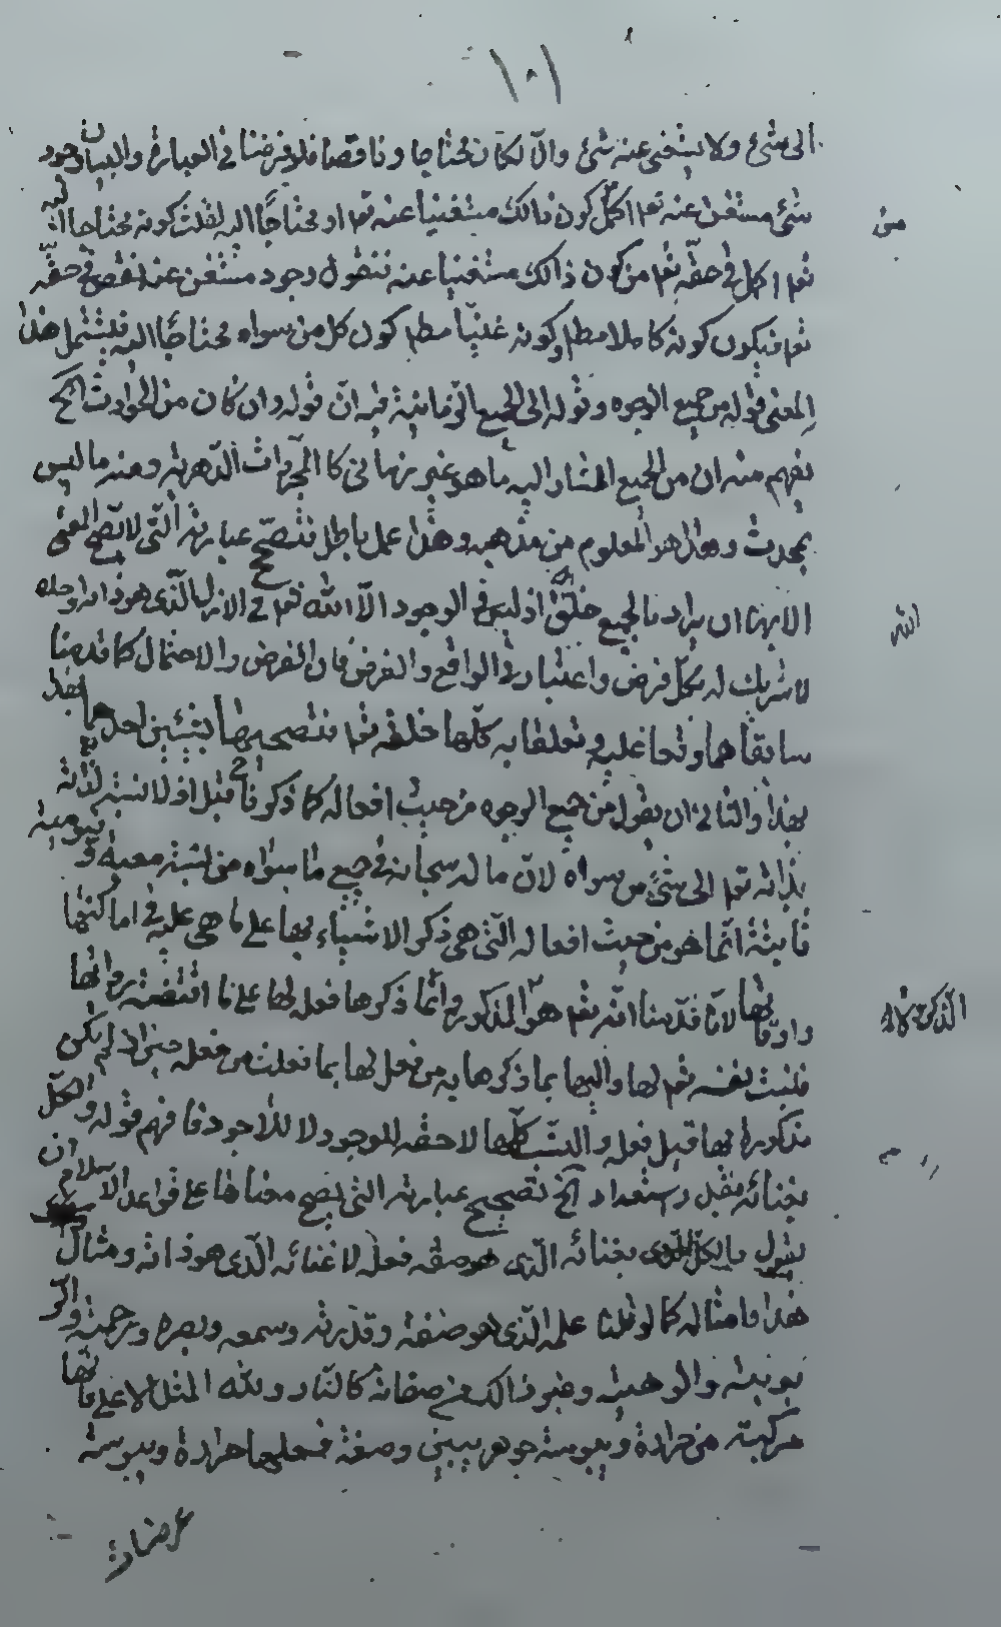 ١٠١
الى شئ ولا يستغنى عنه شئ والّا لكان محتاجا وناقصا فلو فرضنا فى العبارة والبيان وجود
شئ مستغن عنه تعم اكمل كون ذالك مستغنيا عنه تعم او محتاجًا اليه لقلت كونه محتاجا اليه
تعم اكمل فى حقّه تعم من كون ذالك مستغنيا عنه فنقول وجود مستغن عنه نقص فى حقّه
تعم فيكون كونه كاملا مطم وكونه غنيّا مطم كون كل من سواه محتاجًا اليه فليشتمل هذا
المعنى قوله من جميع الوجوه وقوله الى الجميع الزمانية فيه انّ قوله وان كان من الحوادث الخ
يفهم منه ان من الجميع المشار اليه ما هو غير زمانى كالمجردات الدّهرية ومنه ما ليس
بمحدث وهذا هو المعلوم من مذهبه وهذا عمل باطل فتصحّح عبارته الّتى لا تصحّ المعنى
الا بها ان يراد بالجميع خلقُه اذ ليس فى الوجود الّا الله تعم فى الازل الّذى هو ذاته وحده
لا شريك له بكلّ فرض واعتبار فى الواقع والفرض فان الفرض والاحتمال كما قدمنا
سابقا هما وقعا عليه وتعلقا به كلّها خلقه تعم فتصحيحها بشيئين احدهما
بهذا والثانى ان يقول من جميع الوجوه من حيث افعاله كما ذكرنا قبل اذ لا نسبة لذاته
بذاته تعم الى شئ من سواه لانّ ما له سبحانه فى جميع ما سواه من نسبة معية وقيومية
ثابتة انّما هو من حيث افعاله الّتى هى ذكر الاشياء بها على ما هى عليه فى اماكنها
واوقاتها لانّا قدّمنا انّه تعم هو المذكور وانّما ذكرها فعله لها على ما اقتضته ذواتها
فنسب نفسه تعم لها واليها بما ذكرها به من فعل لها بما تعلّق من فعله حين اذ لم يكن
مذكورة بها قبل فعله والنسب كلّها لاحقة للوجود لا للاوجود فافهم قوله والكلّ
بغنائه بقدر استعداد الخ تصحيح عبارته التى يصح معناها على قواعد الاسلام ان
يقول بالكلّ بغنائه الّذى هو صفة فعله لا غنائه الّذى هو ذاته ومثال
هذا وامثاله كما لو قلنا علمه الّذى هو صفته وقدرته وسمعه وبصره ورحمته والر
بوبيته والوهيته وغير ذالك من صفاته كالنار ولله المثل الاعلى فانّها
مركبة من حرارة ويبوسة جوهريين وصفة فعلها حرارة ويبوسة
عرضيان
من
الله